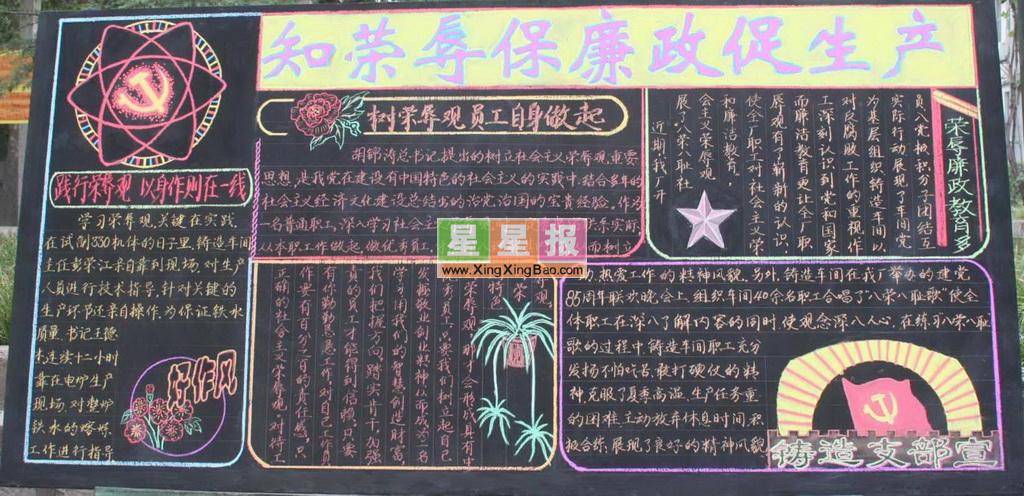 知荣辱保廉政促生产
践行荣辱观 以身作则在一线
学习荣辱观,关键在实践,
在试制330机体的日子里,铸造车间
主任彭荣江亲自靠到现场,对生产
人员进行技术指导,针对关键的
生产环节还亲自操作,为保证铁水
质量,书记王德
连续十二小时
靠在电炉生产
现场,对整炉
铁水的熔炼
工作进行指导
好作风
树荣辱观员工自身做起
胡锦涛总书记提出的树立社会主义荣辱观,重要
思想,是我党在建设有中国特色的社会主义的实践中,结合多年的
社会主义经济文化建设总结出的治党,治国的宝贵经验,作为
一名普通职工,深入学习社会主义
从本职工作做起,做优秀员工,
而树立
荣辱观
发扬敬业创业精神
学习用我们的智慧创造财富,
我们把握方向,踏实肯干,加强
责的员工才能得到信赖,只要
你有勤勤恳恳工作,对自己工作负
作果要有百分之百的责任感,只
正确的社会主义荣辱观,对待工
荣辱廉政教育
近期,我厂开
展了八荣八耻社
会主义荣辱观
和廉洁教育,
使全厂职工对社会主义荣
辱观有了新新的认识,
而廉洁教育更让全厂职
工深刻认识到党和国家
对反腐败工作的重视作
为基层组织铸造车间以
实际行动展现了车间党
员入党积极分子团结互
热爱工作的精神风貌。另外,铸造车间在我厂举办的建党
85周年联欢晚会上,组织车间40余名职工合唱了“八荣八耻歌”使全
体职工在深入了解内容的同时,使观念深入人心,在练习八荣八耻
歌的过程中,铸造车间职工充分
发扬不怕吃苦,敢打硬仗的精
神克服了夏季高温,生产任务重
的困难,主动放弃休息时间积
极合练,展现了良好的精神风貌
铸造支部宣
星星报
www.XingXingBao.com